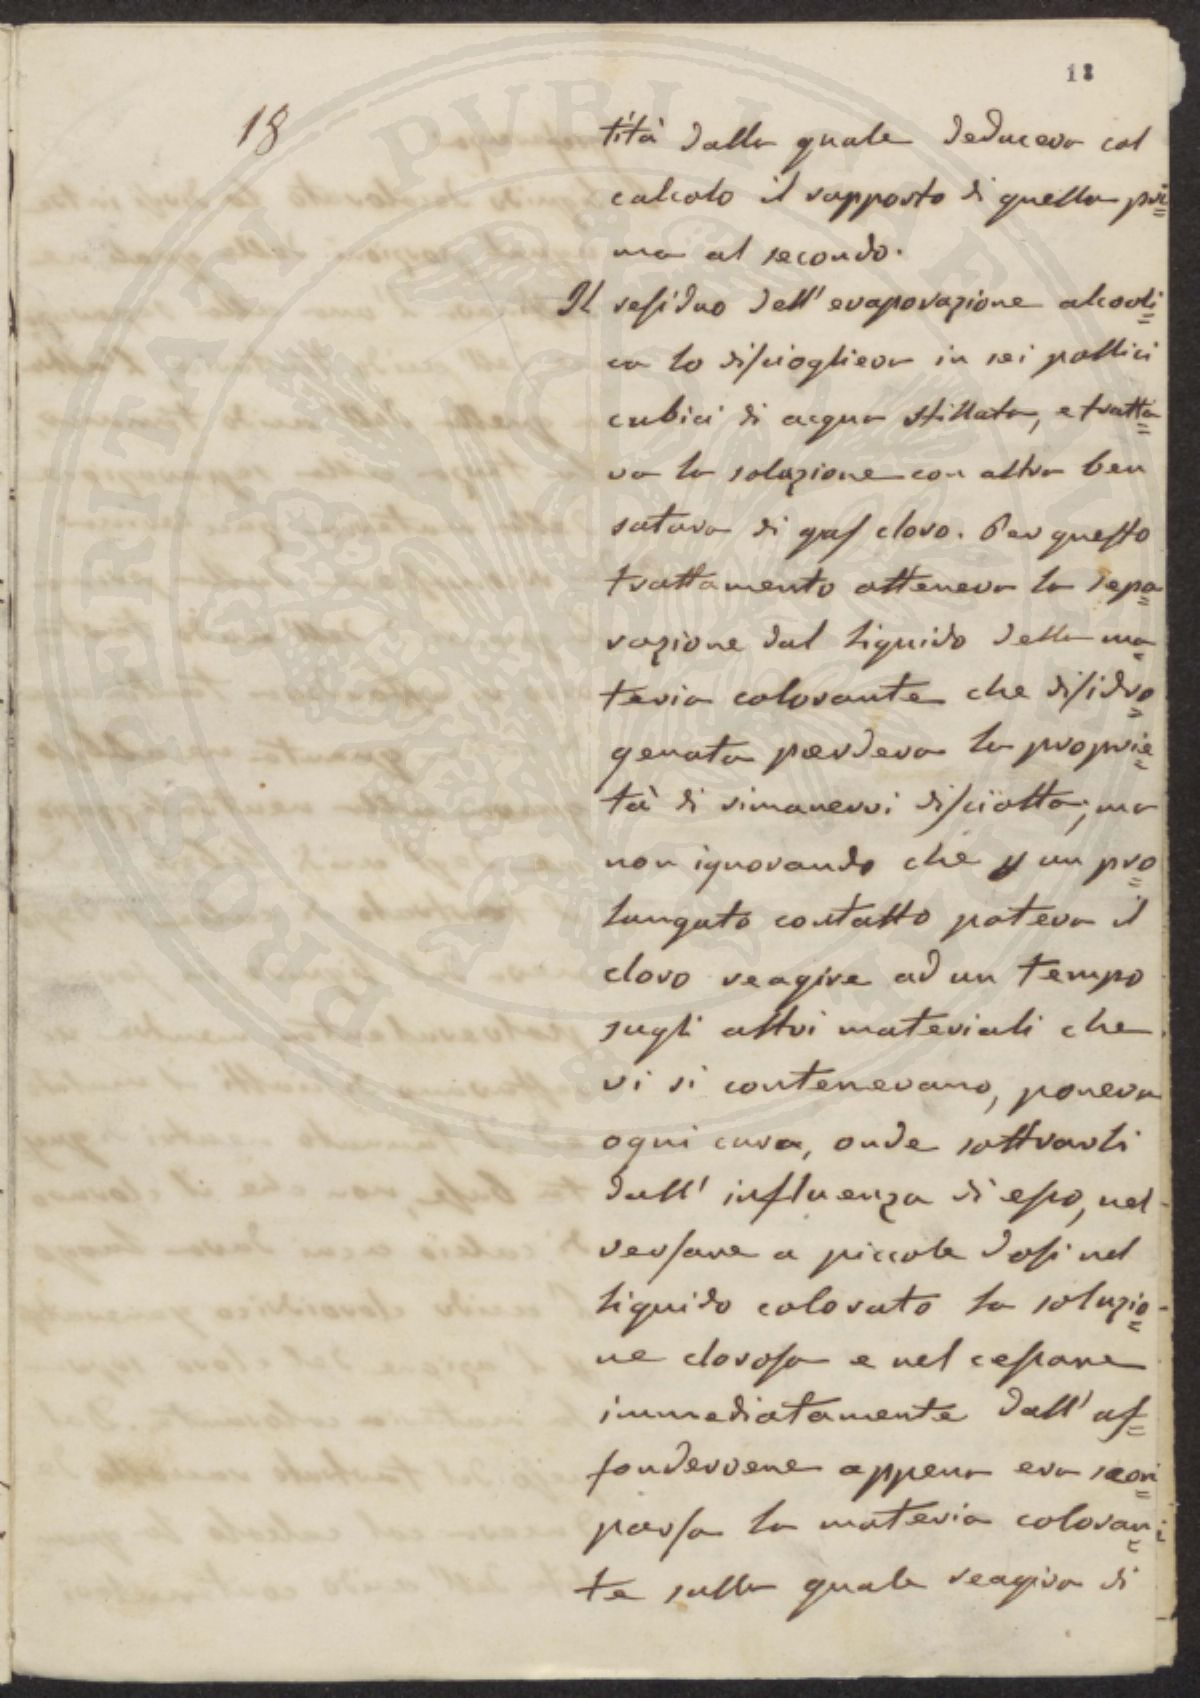 13
18
tità dalla quale deduceva col
calcolo il rapporto di quella pri=
ma al secondo.
Il residuo dell' evaporazione alcooli=
ca lo discioglieva in sei pollici
cubici di acqua stillata, e tratta=
va la soluzione con altra ben
satura di gas cloro. Per questo
trattamento otteneva la sepa=
razione dal liquido della ma=
teria colorante che disidro=
genata perdeva la proprie=
tà di rimanervi disciolta; ma
non ignorando che un pro=
lungato contatto poteva il
cloro reagire ad un tempo
sugli altri materiali che
vi si contenevano, poneva
ogni cura, onde sottrarli
dall' influenza di esso, nel
versare a piccole dosi nel
liquido colorato la soluzio=
ne clorosa e nel cessare
immediatamente dall' af=
fondervene appena era scom
parsa la materia coloran=
te sulla quale reagiva di
PROSPERITATI PVBLICAE